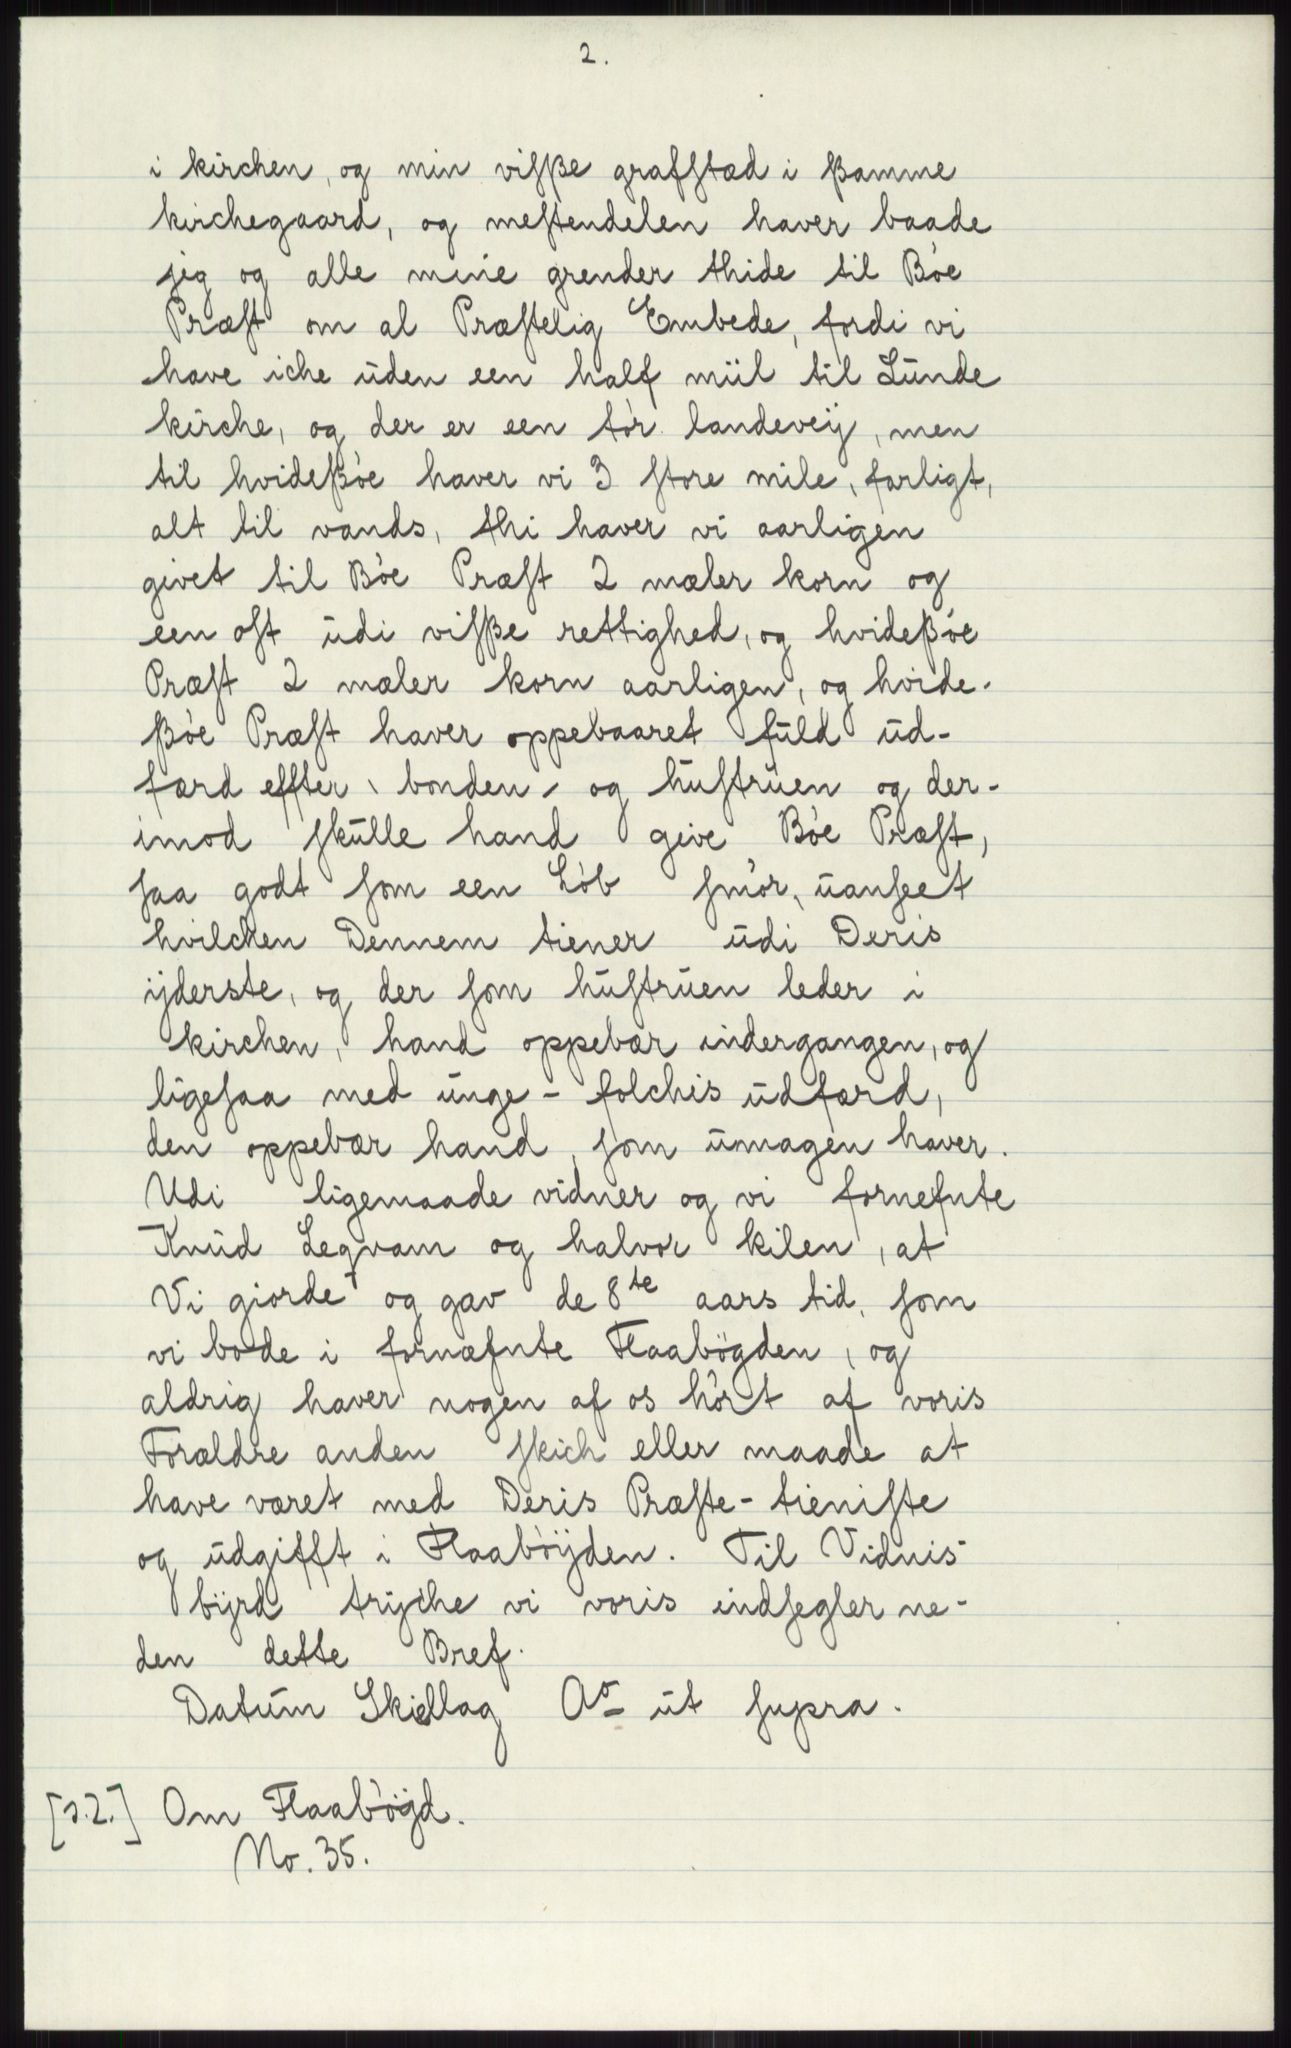 2.
i kirchen, og min viſße grafſtæd i ßamme
kirchegaard, og meſtendelen haver baade
jeg og alle mine grender thide til Bóe
Præſt om al Præſtelig Embede, fordi vi
have iche ūden een half miil til Lūnde
kirche, og der er een tór landeveij, men
til hvideßóe haver vi 3 ſtore mile, farligt,
alt til vands, thi haver vi aarligen
givet til Bóe Præſt 2 mæler korn og
een oſt ūdi viſße rettighed, og hvideßóe
Præſt 2 mæler korn aarligen, og hvide-
ßóe Præſt haver oppebaaret fūld ūd-
færd effter bonden og hūſtrūen og der-
imod ſkūlle hand give Bóe Præſt,
ſaa godt ſom een Lób ſmór, ūanſeet
hvilchen Dennem tiener ūdi Deris
ijderste, og der ſom hūſtrūen leder i
kirchen, hand oppebær indergangen, og
ligeſaa med ūnge-folchis ūdfærd,
den oppebær hand, ſom ūmagen haver.
Udi ligemaade vidner og vi fornefnte
Knūd Legvam og halvor kilen, at
Vi giorde og gav de 8te aars tid, ſom
vi bode i fornæfnte Flaabögden, og
aldrig haver nogen af os hórt af voris
Forældre anden ſkich eller maade at
have været med Deris Præſte-tieniſte
og ūdgifft i Flaabóijden. Til Vidnis-
bijrd trijche vi voris indſegler ne-
den dette Bref.
Datūm Skiellag Ao ūt ſupra.
[s.2.] Om Flaabójgd.
No. 35.